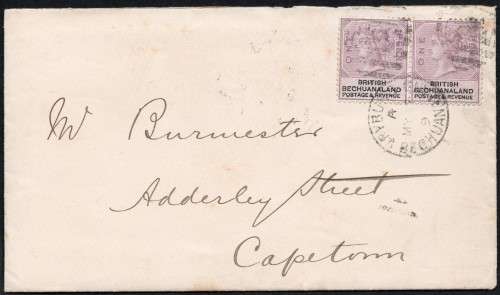 BRITISH
BECHUANALAND
POSTAGE & REVENUE
BRITISH
BECHUANALAND
POSTAGE & REVENUE
Mr Burmester
Adderley Street
Capetown